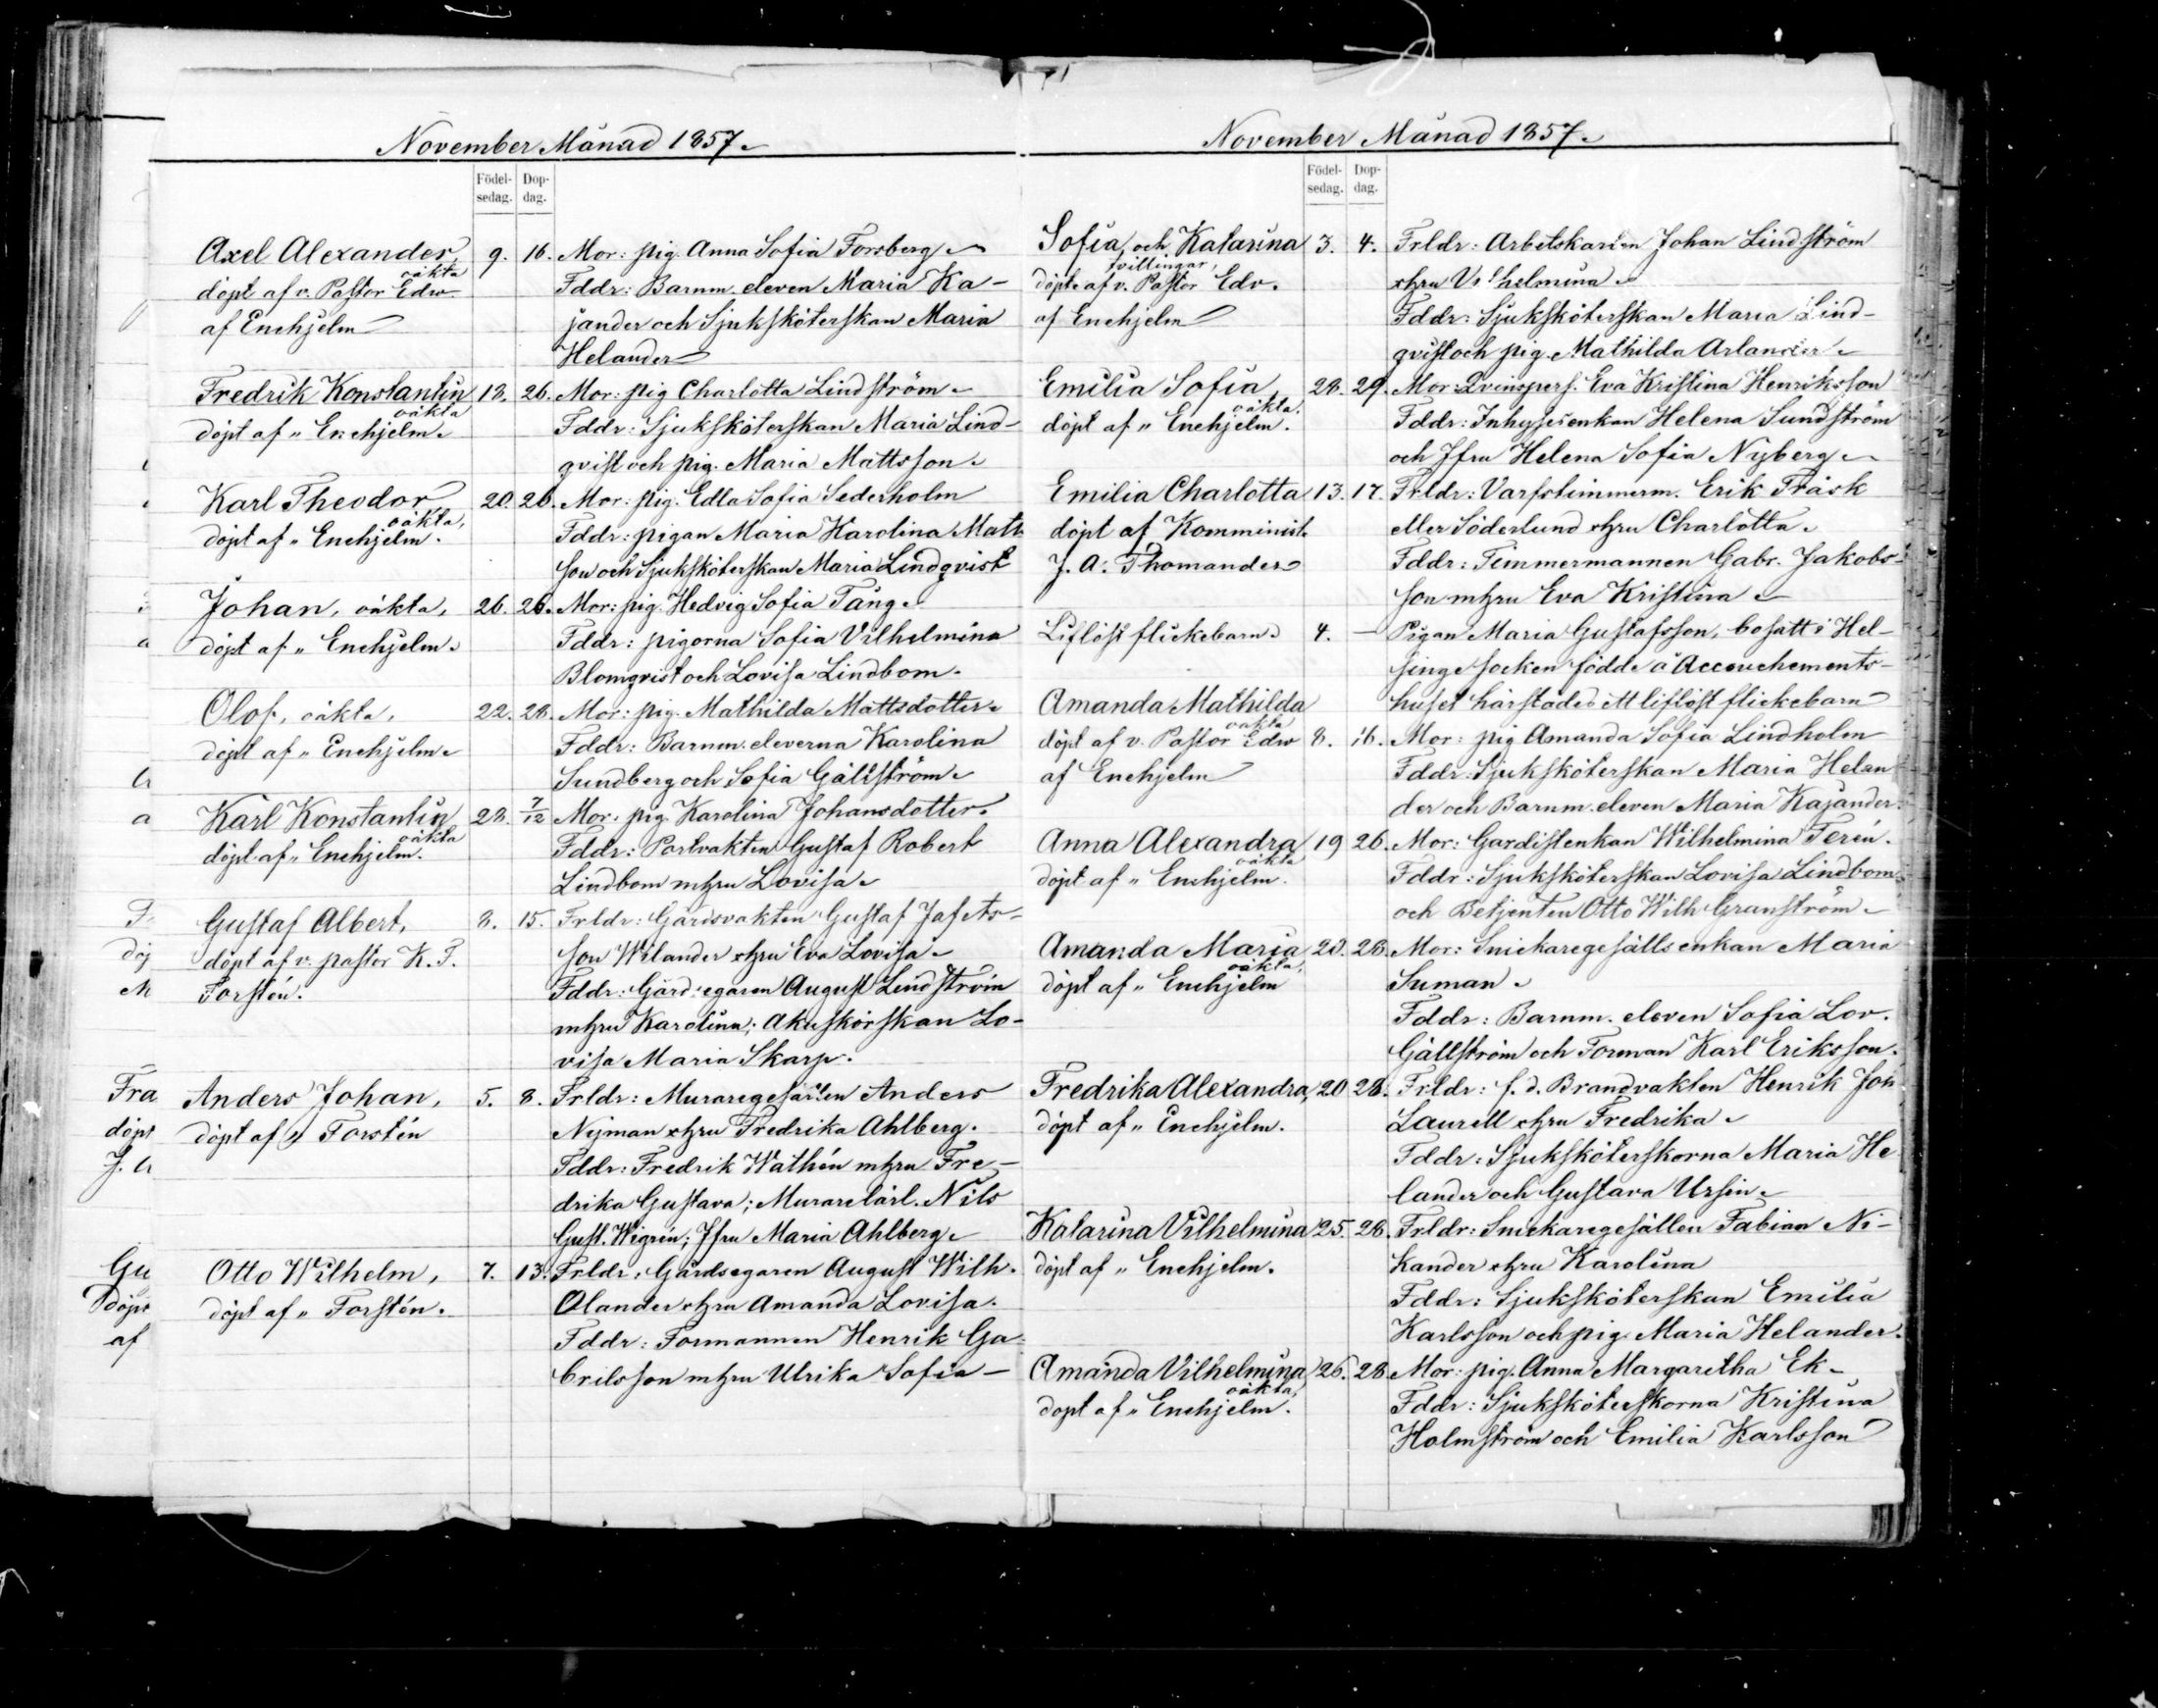 November Månad 1857.
Födel-
sedag.
Dop-
dag.
Axel Alexander, 9. 16. Mor: pig. Anna Sofia Forsberg
oäkta
döpt af v. Pastor Edw. Fddr: Barnm. eleven Maria Ka-
af Enehjelm jander och Sjuksköterskan Maria
Helander
Fredrik Konstantin 18. 26. Mor: pig Charlotta Lindström.
oäkta
döpt af „ Enehjelm. Fddr: Sjuksköterskan Maria Lind-
qvist och pig. Maria Mattsson.
Karl Theodor 20. 26. Mor: pig. Edla Sofia Sederholm
oäkta,
döpt af „ Enehjelm. Fddr: pigan Maria Karolina Matts
son och Sjuksköterskan Maria Lindqvist
Johan, oäkta, 26. 26. Mor: pig. Hedvig Sofia Tång.
döpt af „ Enehjelm. Fddr: pigorna Sofia Vilhelmina
Blomqvist och Lovisa Lindbom.
Olof, oäkta, 22. 28. Mor: pig. Mathilda Mattsdotter.
döpt af „ Enehjelm. Fddr: Barnm. eleverna Karolina
Sundberg och Sofia Gällström.
Karl Konstantin 28. 7/12 Mor: pig. Karolina Johansdotter.
oäkta
döpt af „ Enehjelm. Fddr: Portvakten Gustaf Robert
Lindbom mhru Lovisa.
Gustaf Albert, 8. 15. Frldr: Gårdsvakten Gustaf Jafets-
döpt af v. pastor K. T. son Wilander ohru Eva Lovisa.
Forstén. Fddr: Gårdsegaren August Lindström
mhru Karolina; Akuskörskan Lo-
visa Maria Skarp.
Anders Johan, 5. 8. Frldr: Muraregesällen Anders
döpt af „ Forstén Nyman ohru Fredrika Ahlberg.
Fddr: Fredrik Wathén mhru Fre-
drika Gustava; Murarelärl. Nils
Gust. Wigrén; Jfru Maria Ahlberg.
Otto Wilhelm, 7. 13. Frldr: Gårdsegaren August Wilh.
döpt af „ Forstén. Olander ohru Amanda Lovisa.
Fddr: Formannen Henrik Ga-
brilsson mhru Ulrika Sofia
Fra
döpt
J. A
Gu
döpt
af
November Månad 1857.
Födel-
sedag.
Dop-
dag.
Sofia, och Katarina 3. 4. Frldr: Arbetskarlen Johan Lindström
tvillingar,
döpt. af v. Pastor Edv. ohru Vilhelmina.
af Enehjelm Fddr: Sjuksköterskan Maria Lind-
qvist och pig. Mathilda Arlander.
Emilia Sofia, 28. 29. Mor: Qvinspers. Eva Kristina Henriksson
oäkta.
döpt af „ Enehjelm. Fddr: Inhysesenkan Helena Sundström
och Jfru Helena Sofia Nyberg.
Emilia Charlotta 13. 17. Frldr: Varfstimmerm. Erik Träsk
döpt af Komminist. eller Söderlund ohru Charlotta.
J. A. Thomander Fddr: Timmermannen Gabr. Jakobs-
son mhru Eva Kristina
Liflöst flickebarn. 4. — Pigan Maria Gustafsson, bosatt i Hel-
singe socken födde å Accouchements-
huset härstädes ett liflöst flickebarn
Amanda Mathilda
oäkta
döpt af v. Pastor Edw 8. 16. Mor: pig Amanda Sofia Lindholm
af Enehjelm Fddr: Sjuksköterskan Maria Helan
der och Barnm. eleven Maria Kajander.
Anna Alexandra 19 26. Mor: Gardistenkan Wilhelmina Terén.
oäkta
döpt af „ Enehjelm. Fddr: Sjuksköterskan Lovisa Lindbom
och Betjenten Otto Wilh Granström.
Amanda Maria 20. 28. Mor: Snickaregesällsenkan Maria
oäkta,
döpt af „ Enehjelm Suman.
Fddr: Barnm. eleven Sofia Lov.
Gällström och Forman Karl Eriksson.
Fredrika Alexandra, 20 28. Frldr: f.d. Brandvakten Henrik Joh
döpt af „ Enehjelm. Laurell ohru Fredrika.
Fddr: Sjuksköterskorna Maria He
lander och Gustava Ursin.
Katarina Vilhelmina 25. 28. Frldr: Snickaregesällen Fabian Ni-
döpt af „ Enehjelm. kander ohru Karolina
Fddr: Sjuksköterskan Emilia
Karlsson och pig. Maria Helander.
Amanda Vilhelmina 26. 28 Mor: pig. Anna Margaretha Ek
oäkta,
döpt af „ Enehjelm. Fddr: Sjuksköterskorna Kristina
Holmström och Emilia Karlsson